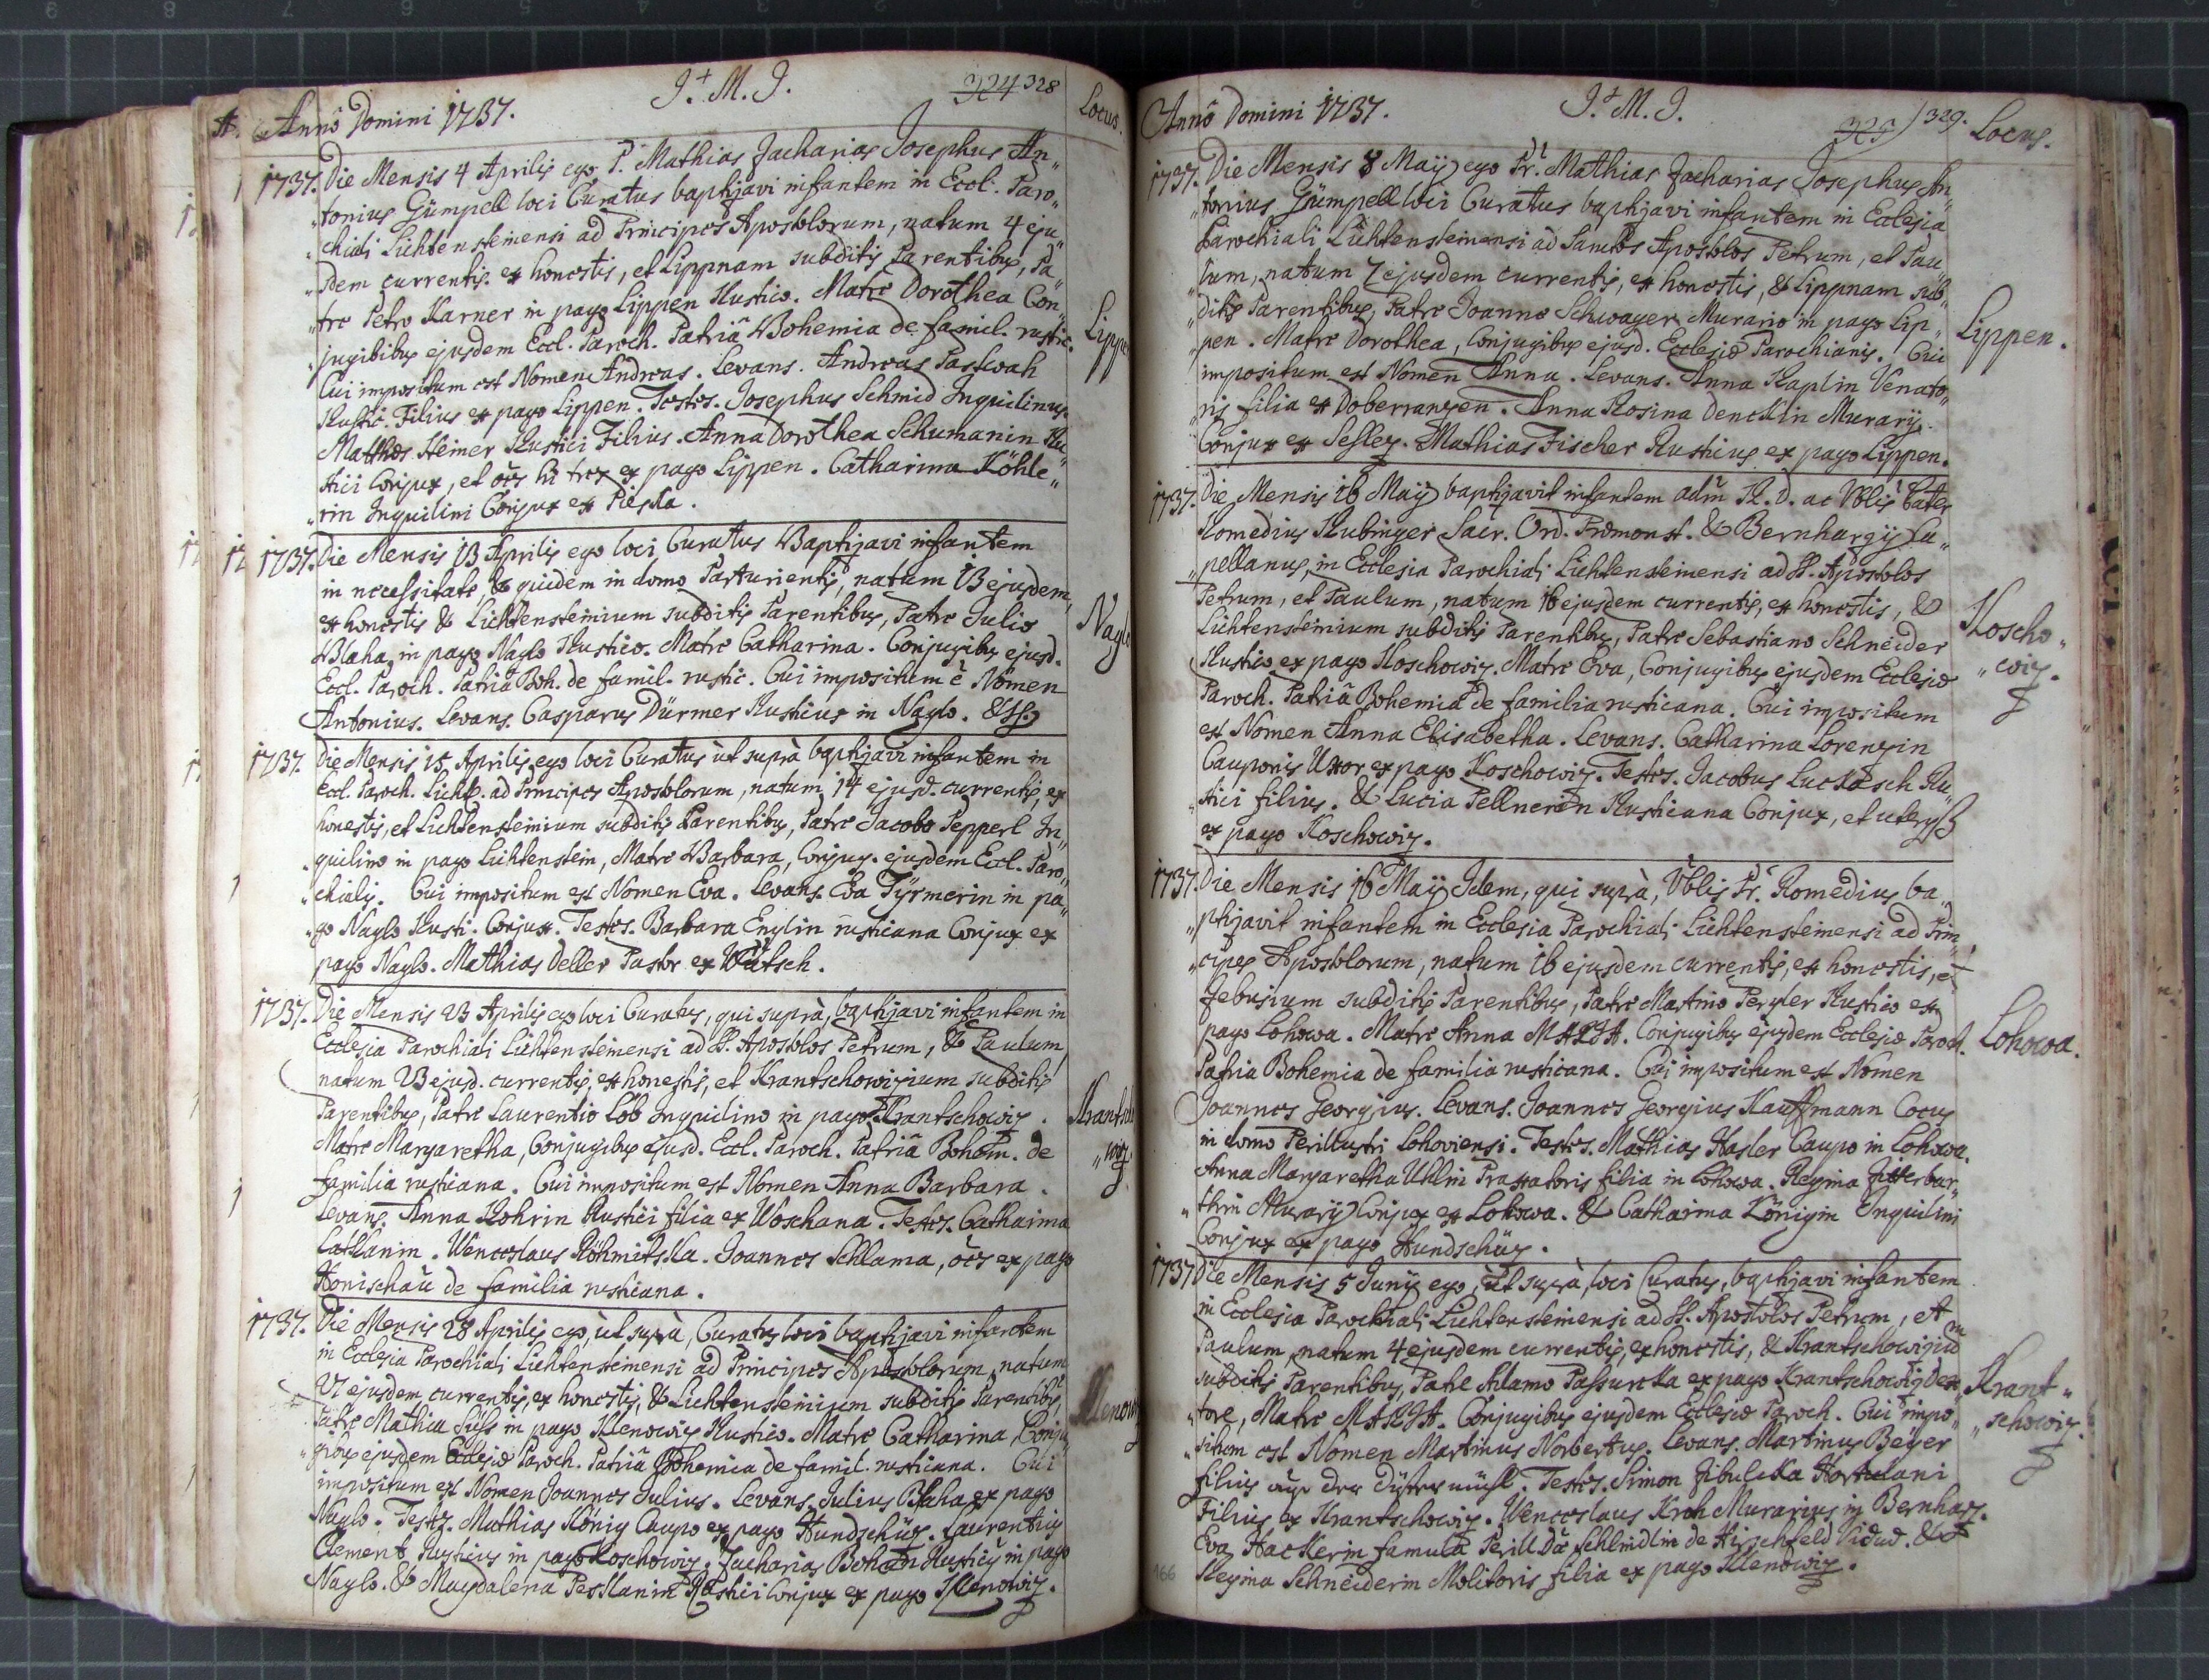 Anno Domini 1737.
J. M. J.
324 328
Locus.
1737. Die Mensis 4 Aprilis ego P. Mathias Zacharias Josephus An„
„tonius Gümpell loci Curatus baptizavi infantem in Eccl. Paro„
„chiali Lichtensteinensi ad Principes Apostolorum, natum 4 eju„
„sdem currentis, ex honestis, et Lippnam subditis Parentibus, Pa„
„tre Petro Karner in pago Lippen Rustico. Matre Dorothea Con„
„jugibus ejusdem Eccl. Paroch. Patriâ Bohemia de famil. rustic.
Cui impositum est Nomen Andreas. Levans. Andreas Paskwah
Rustic. Filius ex pago Lippen. Testes. Josephus Schmid Inquilinus.
Matthes Heiner Rustici Filius. Anna Dorothea Schumanin Ru„
stici Conjux, et oēs hi tres ex pago Lippen. Catharina Köhle„
„rin Inquilini Conjux ex Piesla.
Lippe
1737. Die Mensis 13 Aprilis ego loci Curatus Baptizavi infantem
in necessitate, & quidem in domo Parturientis, natum 13 ejusdem,
ex honestis & Lichtensteinium subditis Parentibus, Patre Julio
Blaha, in pago Naglo Rustico. Matre Catharina. Conjugibus ejusd.
Eccl. Paroch. Patriâ Boh. de famil. rustic. Cui impositum ē Nomen
Antonius. Levans. Casparus Dürmer Rusticus in Naglo.
Naglo
1737. Die Mensis 15 Aprilis, ego loci Curatus ùt suprà baptizavi infantem in
Eccl. Paroch. Licht. ad Principes Apostolorum, natum 14 ejusd. currentis, ex
honestis, et Lichtensteinium subditis Parentibus, Patre Jacobo Pepperl In„
„quilino in pago Lichtenstein, Matre Barbara, Conjug. ejusdem Eccl. Paro„
„chialis. Cui impositum est Nomen Eva. Levans. Eva Tyrmerin in pa„
„go Naglo Rusti. Conjux. Testes. Barbara Englin rusticana Conjux ex
pago Naglo. Mathias Deller Pastor ex
1737. Die Mensis 23 Aprilis ego loci Curatus, qui suprà, baptizavi infantem in
Ecclesia Parochiali Lichtensteinensi ad SS. Apostolos Petrum, & Paulum
natum 23 ejusd. currentis, ex honestis, et Krantschowizium subditis
Parentibus, Patre Laurentio Löb Inquilino in pago Krantschowiz.
Matre Margaretha, Conjugibus ejusd. Eccl. Paroch. Patriâ Bohem. de
familia rusticana. Cui impositum est Nomen Anna Barbara.
Levans. Anna Rohrin Rustici filia ex Woschana. Testes. Catharina
Latkanin. Wenceslaus Röhmitska. Joannes Schlama, oēs ex pago
Honischau de familia rusticana.
Krantscho
„wiz.
1737. Die Mensis 28 Aprilis ego, ùt suprà, Curatus loci baptizavi infantem
in Ecclesia Parochiali Lichtensteinensi ad Principes Apostolorum, natum
27 ejusdem currentis, ex honestis, & Lichtensteinium subditis Parentibus,
Patre Mathia Süss in pago Klenowiz Rustico. Matre Catharina, Conju„
„gibus ejusdem Ecclesiæ Paroch. Patriâ Bohemia de famil. rusticana. Cui
impositum est Nomen Joannes Julius. Levans. Julius Blaha ex pago
Naglo. Testes. Mathias König Caupo ex pago Hundschüz. Laurentius
Clement Rusticus in pago Koschowiz. Zacharias Rusticus in pago
Naglo. & Magdalena Pesklanin Rustici Conjux ex pago Klenowiz.
Klenowiz
Anno Domini 1737.
J. M. J.
325 329.
Locus.
1737. Die Mensis 8 Maÿ ego Pr. Mathias Zacharias Josephus An„
„tonius Gümpell loci Curatus baptizavi infantem in Ecclesia
Parochiali Lichtensteinensi ad Sanctos Apostolos Petrum, et Pau„
„lum, natum 7 ejusdem currentis, ex honestis, & Lippnam sub„
„ditis Parentibus, Patre Joanne Schwager Murario in pago Lip„
„pen. Matre Dorothea, Conjugibus ejusd. Ecclesiæ Parochianis. Cui
impositum est Nomen Anna. Levans. Anna Kaplin Venato„
„ris filia ex Doberranzen. Anna Rosina Dencklin Murarÿ
Conjux ex Sessez. Mathias Fischer Rusticus ex pago Lippen.
Lippen.
1737. Die Mensis 16 Maÿ baptizavit infantem adm̄ R. D. ac Vblis Pater
Romedius Rubinger Sacr. Ord. Præmonst. & Bernhargÿ Ca„
„pellanus, in Ecclesia Parochiali Lichtensteinensi ad SS. Apostolos
Petrum, et Paulum, natum 16 ejusdem currentis, ex honestis, &
Lichtensteinium subditis Parentibus, Patre Sebastiano Schneider
Rustico ex pago Koschowiz. Matre Eva, Conjugibus ejusdem Ecclesiæ
Paroch. Patriâ Bohemia de familia rusticana. Cui impositum
est Nomen Anna Elisabetha. Levans. Catharina Lorenzin
Cauponis Uxor ex pago Koschowiz. Testes. Jacobus Luckasch Ru„
„stici filius. & Lucia Pellnerin Rusticana Conjux, et uterqß
ex pago Koschowiz.
Koscho„
„wiz.
1737. Die Mensis 16 Maÿ Idem, qui suprà, Vblis Pr. Romedius ba„
„ptizavit infantem in Ecclesia Parochiali Lichtensteinensi ad Prin„
„cipes Apostolorum, natum 16 ejusdem currentis, ex honestis, et
Zebusium subditis Parentibus, Patre Martino Perzler Rustico ex
pago Lohowa. Matre Anna MARIA. Conjugibus ejusdem Ecclesiæ Paroch.
Patria Bohemia de familia rusticana. Cui impositum est Nomen
Joannes Georgius. Levans. Joannes Georgius Kauffmann Cocus
in domo Perillustri Lohoviensi. Testes. Mathias Hasler Caupo in Lohowa.
Anna Margaretha Uhlin Braxatoris filia in Lohowa. Regina Zitterbar„
„thin Murarÿ Conjux ex Lohowa. & Catharina Königin Inquilini
Conjux ex pago Hundschüz.
Lohowa.
1737. Die Mensis 5 Junÿ ego, ùt suprà, loci Curatus, baptizavi infantem
in Ecclesia Parochiali Lichtensteinensi ad SS. Apostolos Petrum, et
Paulum, natum 4 ejusdem currentis, ex honestis, & Krantschowiziu̅m
subditis Parentibus, Patre Adamo Passureka ex pago Krantschowiz
„tore, Matre MARIA. Conjugibus ejusdem Ecclesiæ Paroch. Cui impo„
„situm est Nomen Martinus Norbertus. Levans. Martinus Beÿer
filius Testes. Simon Zibulcka Hortulani
Filius ex Krantschowiz. Wenceslaus Kroh Murarius in Bernharz.
Eva Hackerin famula Perill. Dæ Schlmidlin de Hirschfeld Vidud. &
Regina Schneiderin Molitoris filia ex pago Klenowiz.
Krant„
„schowiz.
166